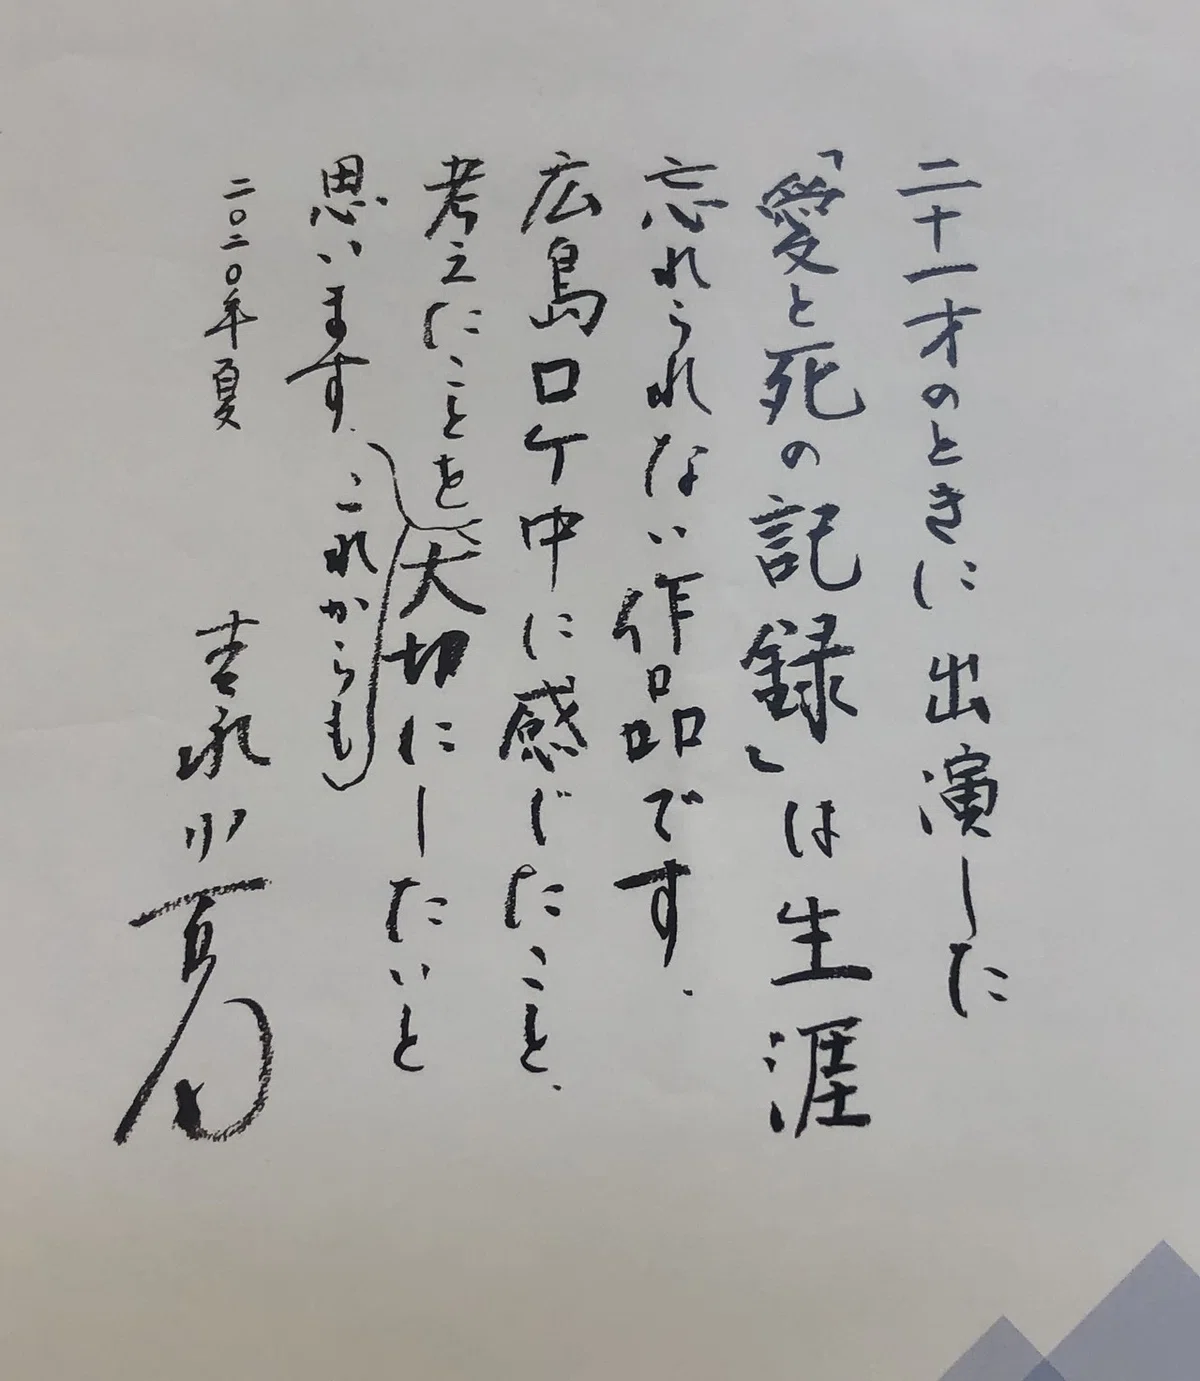 二十一才のときに出演した
「愛と死の記録」は生涯
忘れられない作品です.
広島ロケ中に感じたこと、
考えたことを大切にしたいと
思います. これからも
二〇二〇年夏
吉永小百合